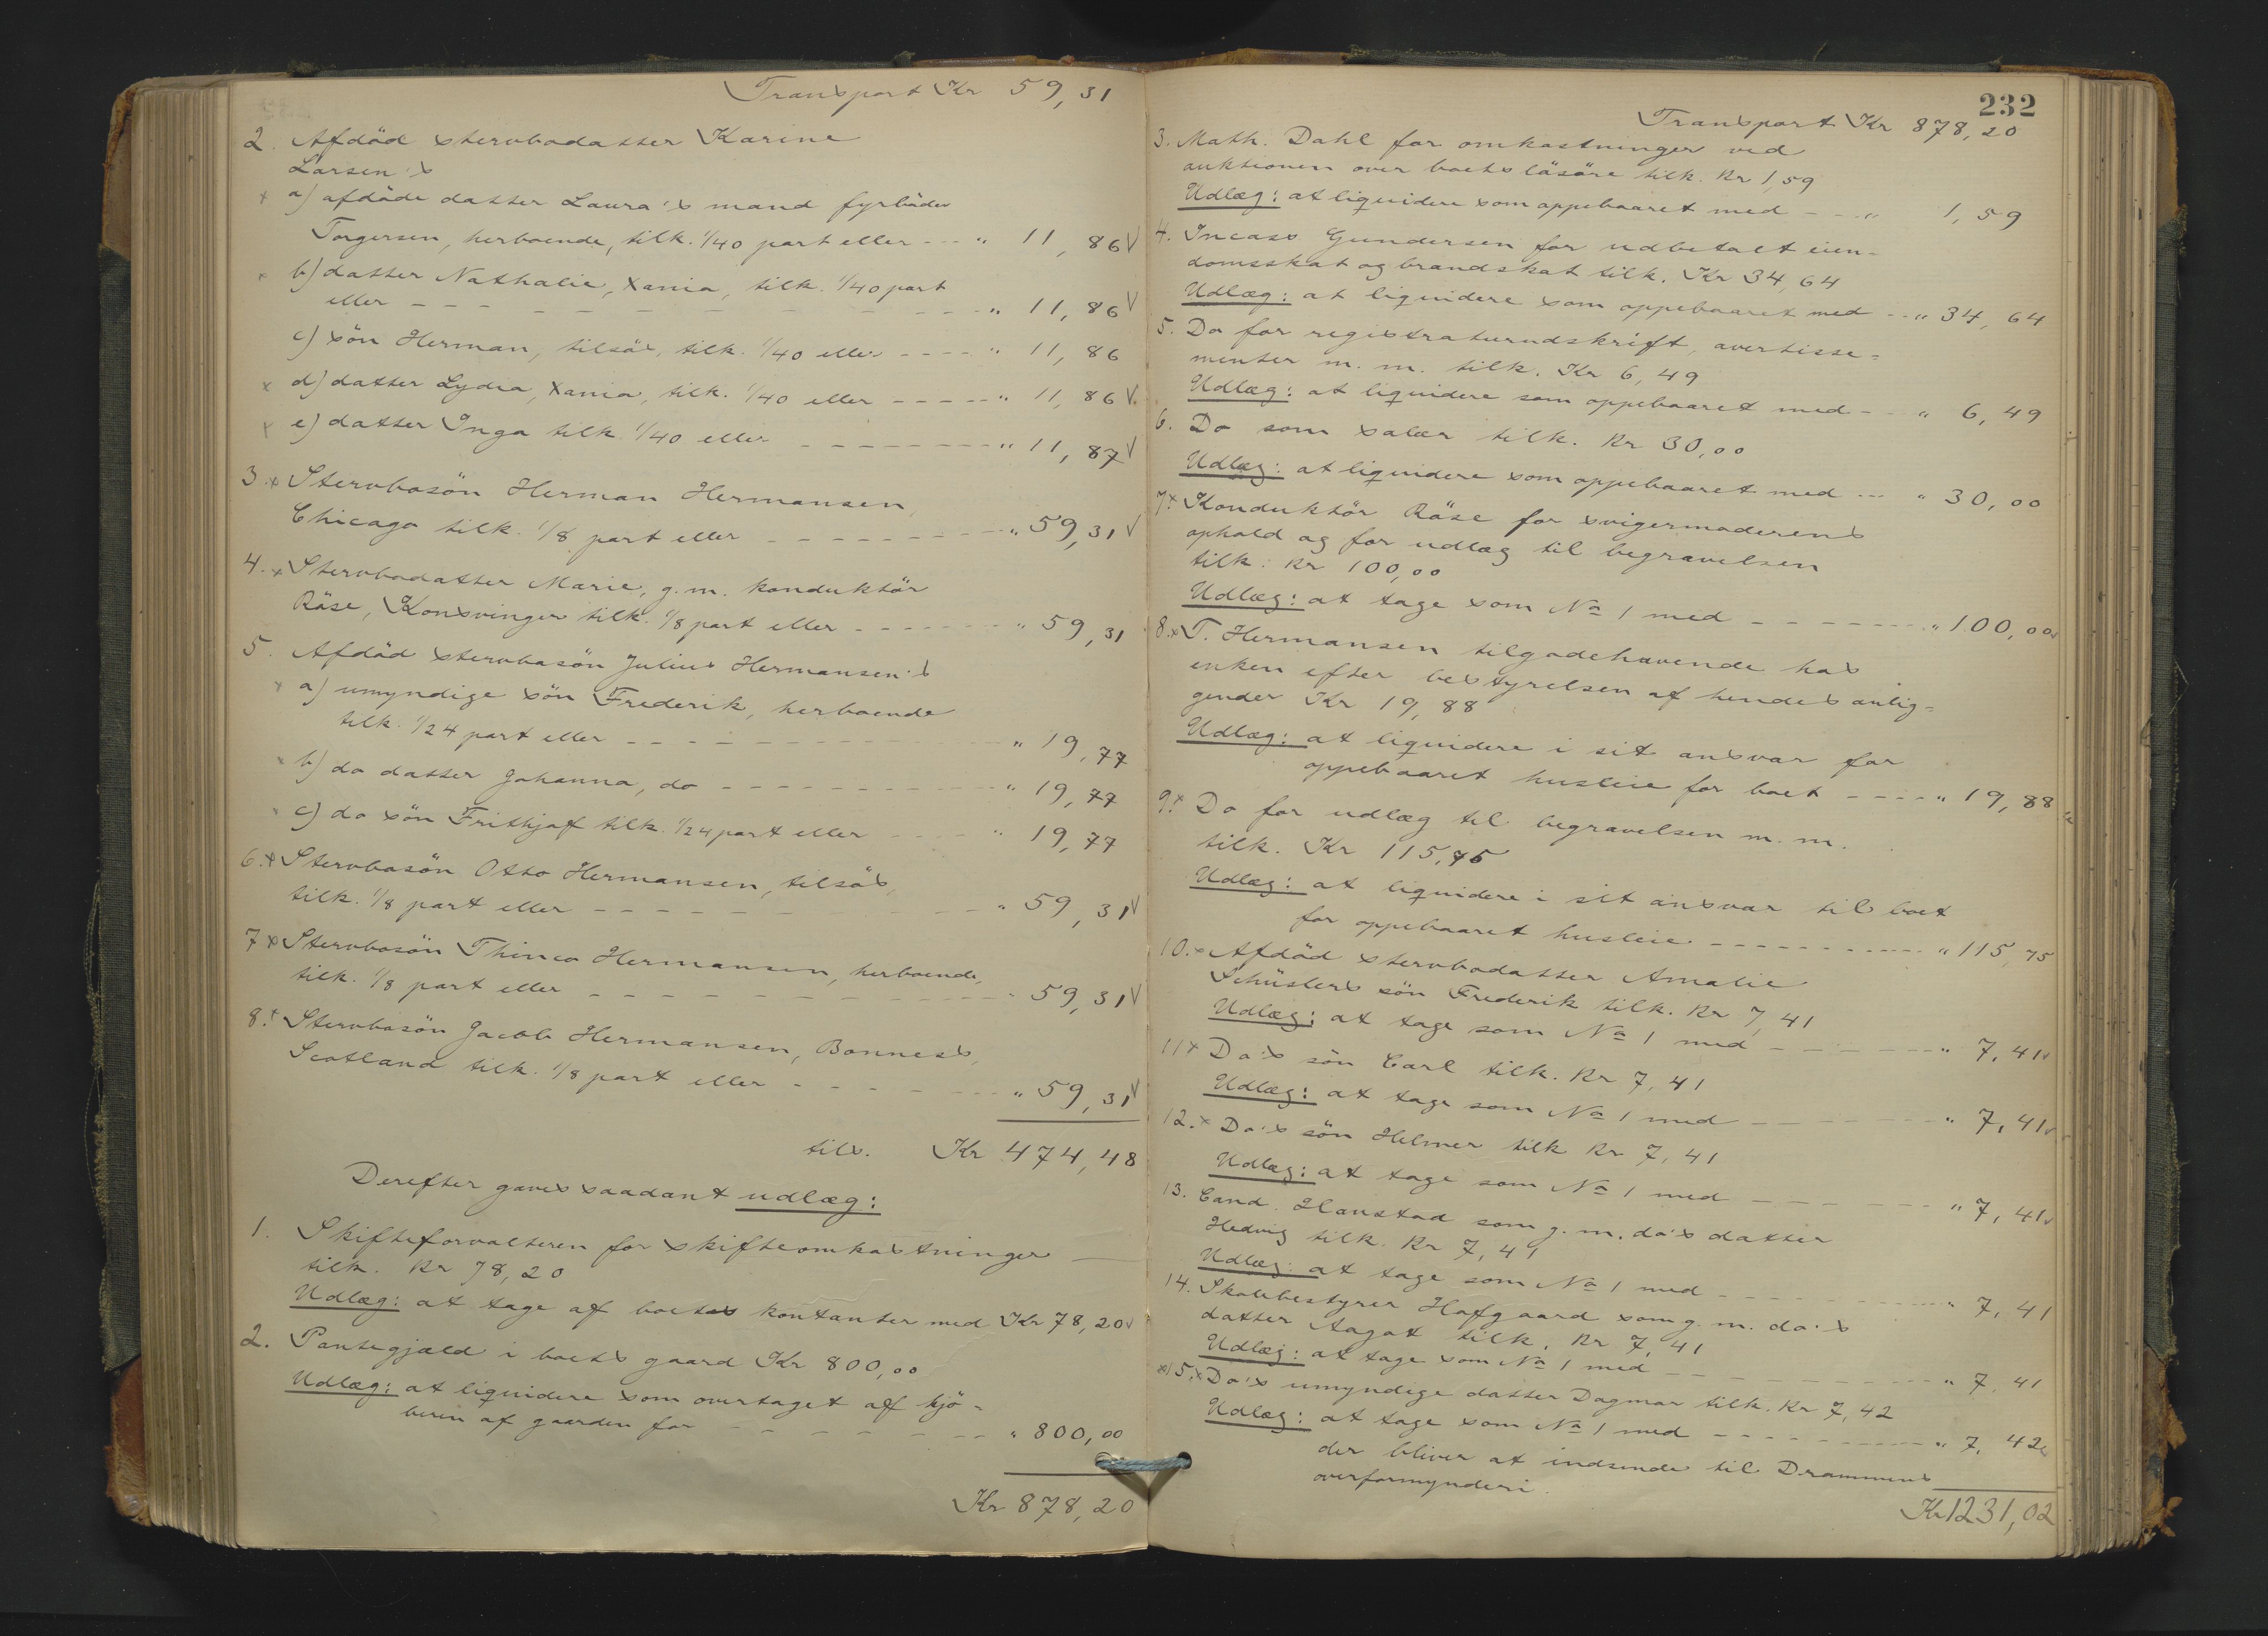 Transport Kr 59,31
2. Afdöd stervbodatter Karine
Larsen's
x a) afdöde datter Laura's mand fyrböder
Torgersen, herboende, tilk. 1/40 part eller - - - " 11,86 V
x b) datter Nathalie, Xania, tilk. 1/40 part
eller - - - - - - - - - - - " 11,86 V
c) sön Herman, tilsös, tilk. 1/40 eller - - - - " 11,86
x d) datter Lydia, Xania, tilk. 1/40 eller - - - - - " 11,86 V.
x e) datter Inga tilk. 1/40 eller - - - - - - - - " 11,87 V
3. x Stervbosön Herman Hermansen,
Chicago tilk. 1/8 part eller - - - - - - - - - " 59,31 V
4. x Stervbodatter Marie, g. m. konduktör
Röse, Konsvinger tilk. 1/8 part eller - - - - - - - " 59,31
5. Afdöd stervbosön Julius Hermansen's
x a) umyndige sön Frederik, herboende
tilk. 1/24 part eller - - - - - - - - - - - " 19,77
x b) do datter Johanna, do - - - - - - - - - - " 19,77
x c) do sön Frithjof tilk. 1/24 part eller - - - - - " 19,77
6. x Stervbosön Otto Hermansen, tilsös,
tilk. 1/8 part eller - - - - - - - - - - - " 59,31 V
7 x Stervbosön Thinco Hermansen, herboende,
tilk. 1/8 part eller - - - - - - - - - - - " 59,31 V
8. x Stervbosön Jacob Hermansen, Bonness,
Scotland tilk. 1/8 part eller - - - - - - - " 59,31 V
tils. Kr 474,48
Derefter gaves saadant udlæg:
1. Skifteforvalteren for skifteomkostninger
tilk. Kr 78,20
Udlæg: at tage af boets kontanter med Kr 78,20 V
2. Pantegjæld i boets gaard Kr 800,00
Udlæg: at liqvidere som overtaget af kjö=
beren af gaarden for - - - - - - - " 800,00
Kr 878,20
232
Transport Kr 878,20
3. Math. Dahl for omkostninger ved
auktionen over boets lösöre tilk. Kr 1,59
Udlæg: at liqvidere som oppebaaret med - - - " 1,59
4. Incass. Gundersen for udbetalt eien=
domsskat og brandskat tilk. Kr 34,64
Udlæg: at liqvidere som oppebaaret med - - " 34,64
5. Do for registraturudskrift, avertisse=
menter m. m. tilk. Kr 6,49
Udlæg: at liqvidere som oppebaaret med - - - " 6,49
6. Do som salær tilk. Kr 30,00
Udlæg: at liqvidere som oppebaaret med - - - " 30,00
7. x Konduktör Röse for svigermoderens
ophold og for udlæg til begravelsen
tilk. Kr 100,00
Udlæg: at tage som No 1 med - - - - - - - - " 100,00 V
8. x T. Hermansen tilgodehavende hos
enken efter bestyrelsen af hendes anlig=
gender Kr 19,88
Udlæg: at liqvidere i sit ansvar for
oppebaaret husleie for boet - - - - " 19,88
9. x Do for udlæg til begravelsen m. m.
tilk. Kr 115,75
Udlæg: at liqvidere i sit ansvar til boet
for oppebaaret husleie - - - - - - - - - " 115,75
10. x Afdöd stervbodatter Amalie
Schüslers sön Frederik tilk. Kr 7,41
Udlæg: at tage som No 1 med - - - - - - - " 7,41 V
11 x Do's sön Carl tilk. Kr 7,41
Udlæg: at tage som No 1 med - - - - - - - " 7,41 V
12. x Do's sön Helmer tilk Kr 7,41
Udlæg: at tage som No 1 med - - - - - - - " 7,41 V
13. Cand. Hanstad som g. m. do's datter
Hedvig tilk. Kr 7,41
Udlæg: at tage som No 1 med - - - - - - - - " 7,41
14. Skolebestyrer Hofgaard som g. m. do's
datter Aagot tilk. Kr 7,41
Udlæg: at tage som No 1 med - - - - - - - - " 7,41
x 15. x Do's umyndige datter Dagmar tilk. Kr 7,42
Udlæg: at tage som No 1 med - - - - - - - - " 7,42 V
der bliver at indsende til Drammens
overformynderi.
Kr 1231,02